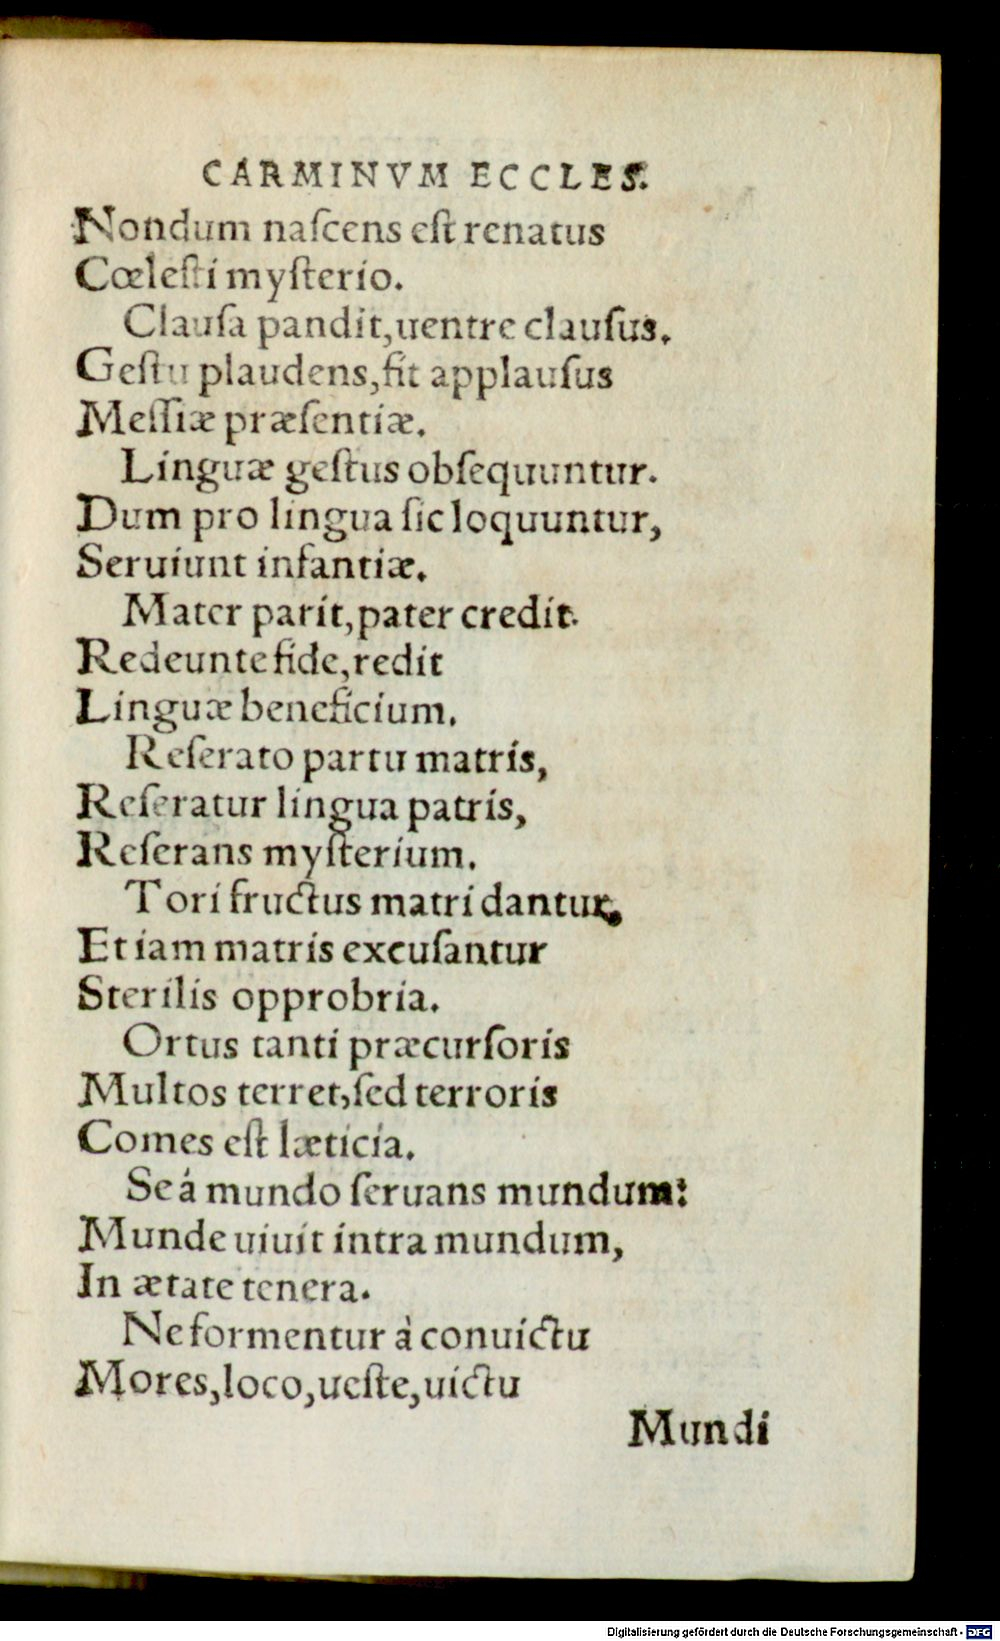 CARMINVM ECCLES.
Nondum naſcens eſt renatus
Cœleſti myſterio.
Clauſa pandit,uentre clauſus.
Geſtu plaudens,fit applauſus
Meſſiæ præſentiæ.
Linguæ geſtus obſequuntur.
Dum pro lingua ſic loquuntur,
Seruiunt infantiæ.
Mater parit,pater credit.
Redeunte fide,redit
Linguæ beneficium.
Reſerato partu matris,
Reſeratur lingua patris,
Reſerans myſterium.
Tori fructus matri dantur,
Et iam matris excuſantur
Sterilis opprobria.
Ortus tanti præcurſoris
Multos terret,ſed terroris
Comes eſt læticia.
Se á mundo ſeruans mundum:
Munde uiuit intra mundum,
In ætate tenera.
Ne formentur à conuictu
Mores,loco,ueſte,uictu
Mundi
Digitalisierung gefördert durch die Deutsche Forschungsgemeinschaft - DFG